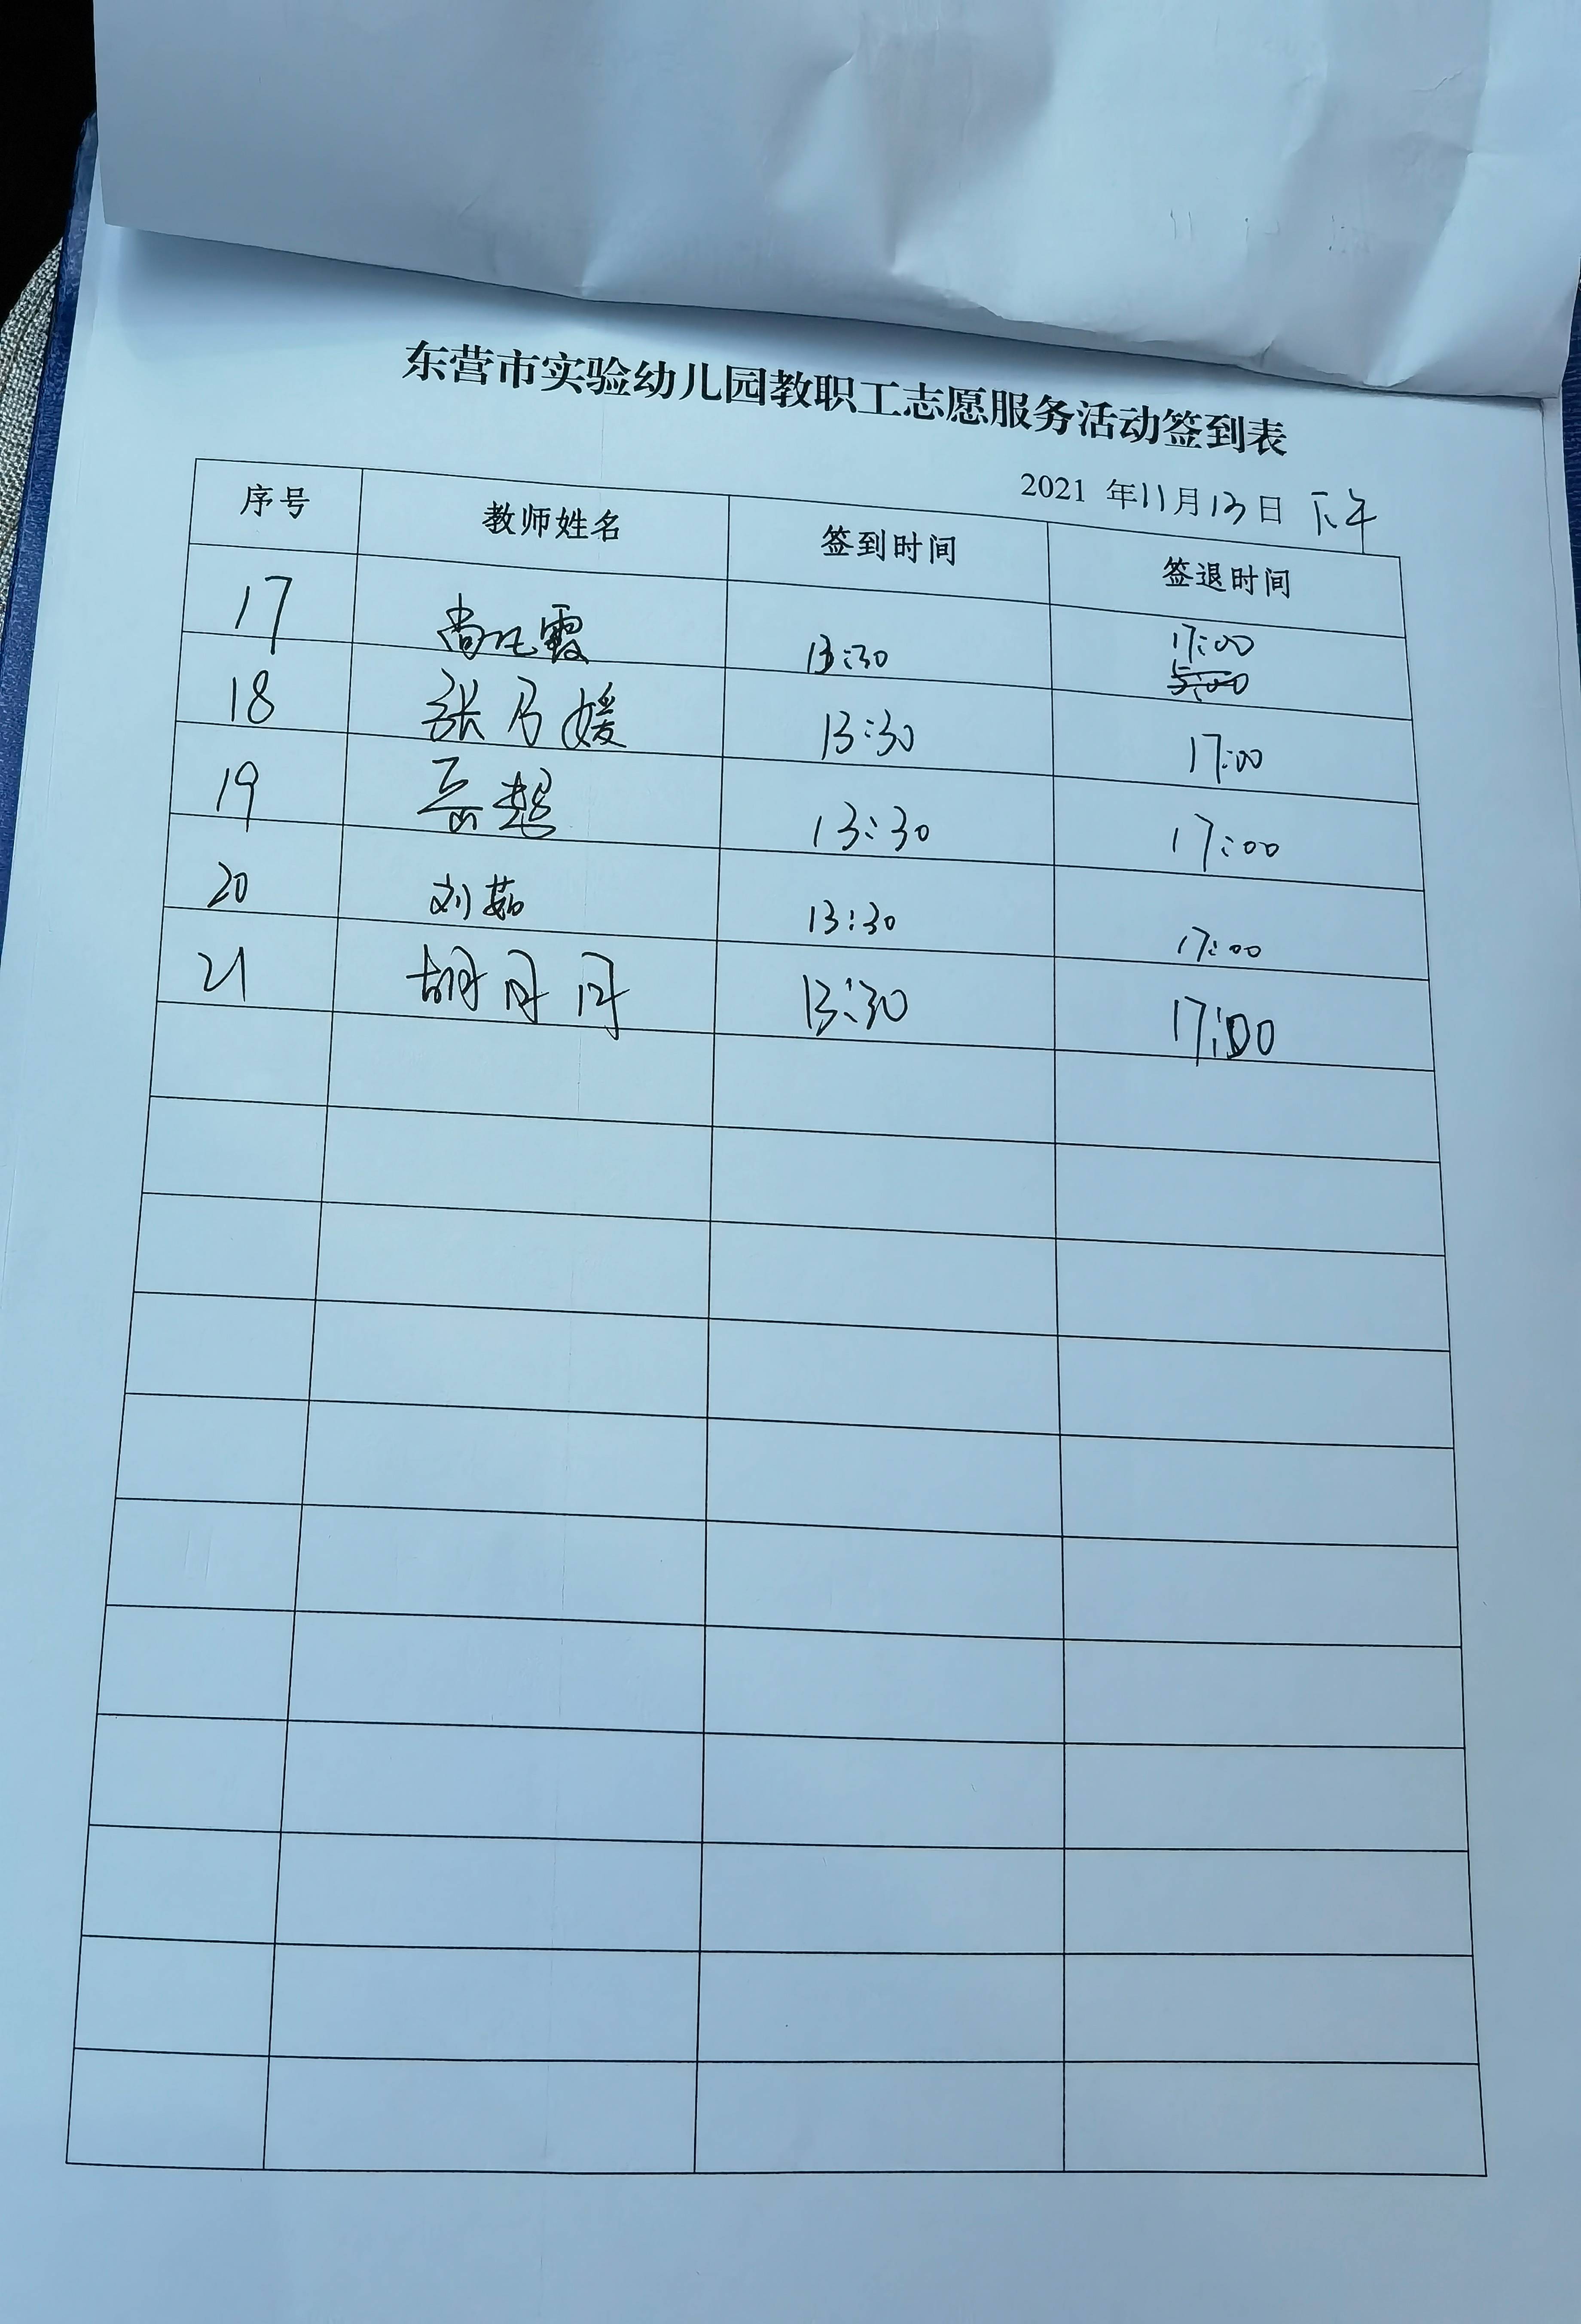 东营市实验幼儿园教职工志愿服务活动签到表
2021 年11月13日 下午
序号 教师姓名 签到时间 签退时间
17 尚 霞 13:30 17:00
18 张乃媛 13:30 17:00
19 岳超 13:30 17:00
20 刘茹 13:30 17:00
21 胡丹丹 13:30 17:00